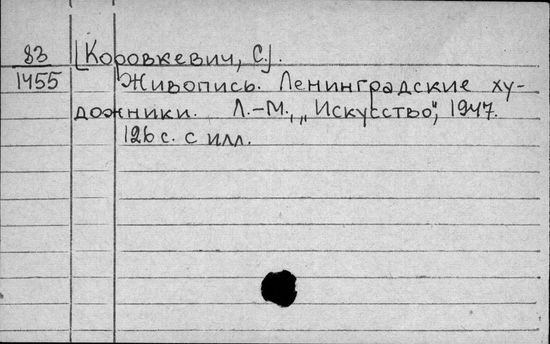 83 [Коровкевич, С.].
1455 Живопись. Ленинградские ху-
дожники. Л.-М., „Искусство", 1947.
126 с. с илл.